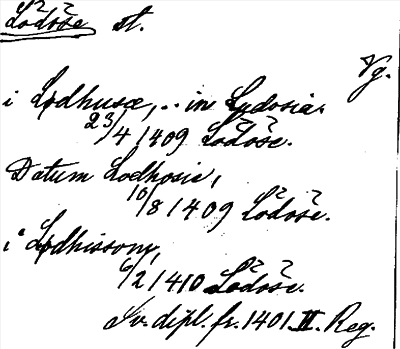 Lödöse st.
Vg.
i Lødhusæ, .. in Lydosia.
23/4 1409 Lödöse.
Datum Lodhosie,
10/8 1409 Lödöse.
i Lødhissom,
6/2 1410 Lödöse.
Sv. dipl. fr. 1401. II. Reg.